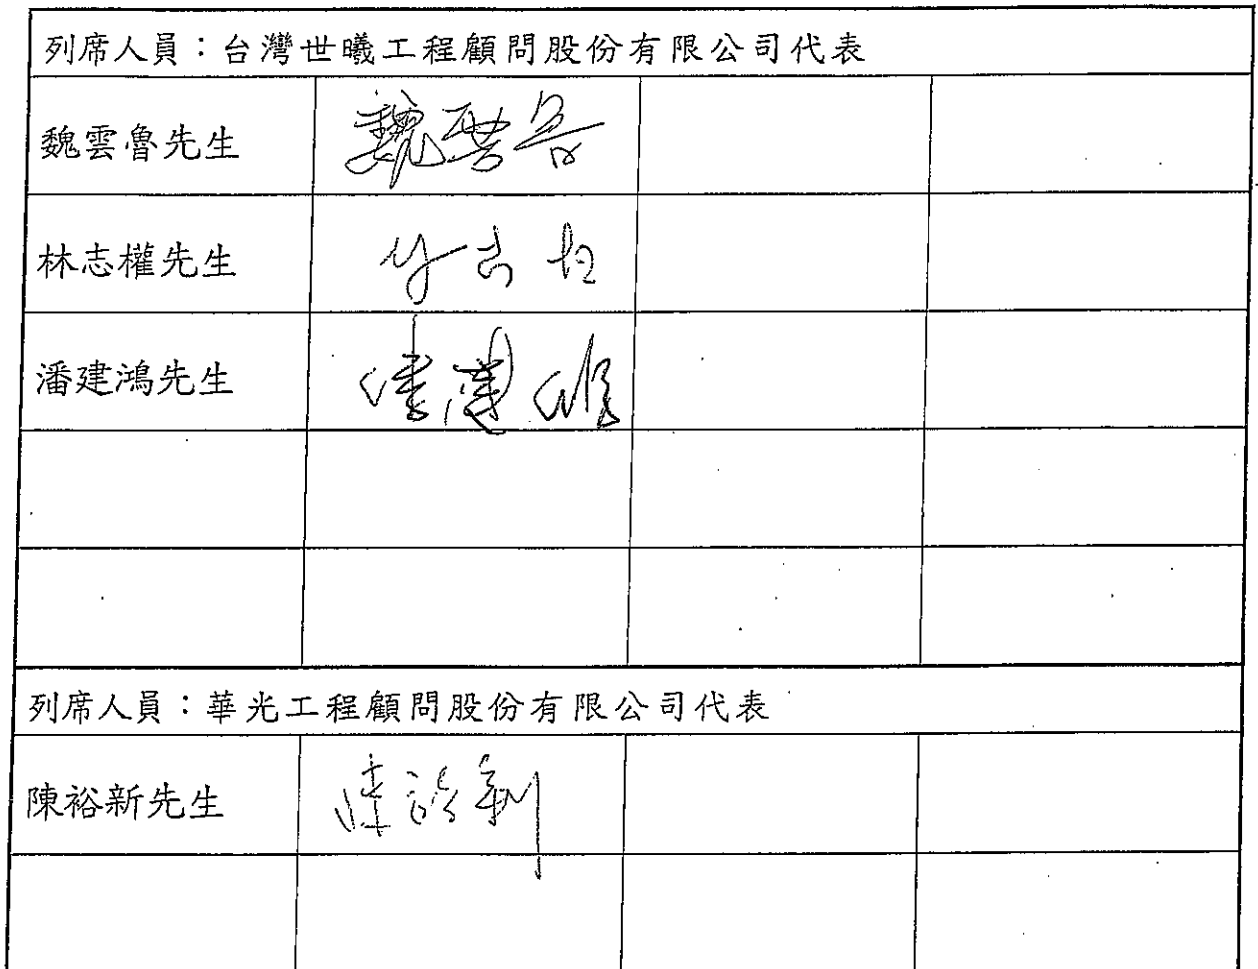 列席人員：台灣世曦工程顧問股份有限公司代表
魏雲魯先生 魏雲魯
林志權先生
潘建鴻先生
列席人員：華光工程顧問股份有限公司代表
陳裕新先生 陳裕新